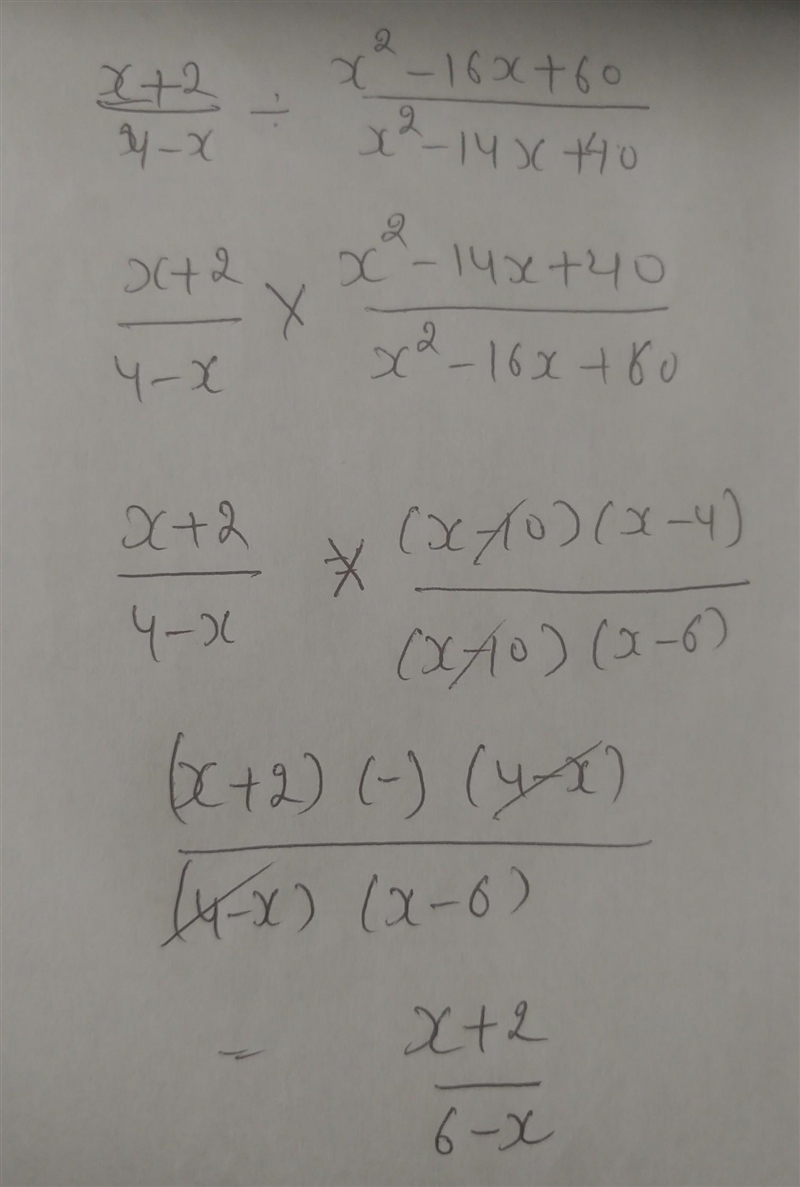 x+2/4-x ÷ x²-16x+60/x²-14x+40
x+2/4-x × x²-14x+40/x²-16x+60
x+2/4-x × (x-10)(x-4)/(x-10)(x-6)
(x+2)(-)(4-x)/(4-x)(x-6)
= x+2/6-x